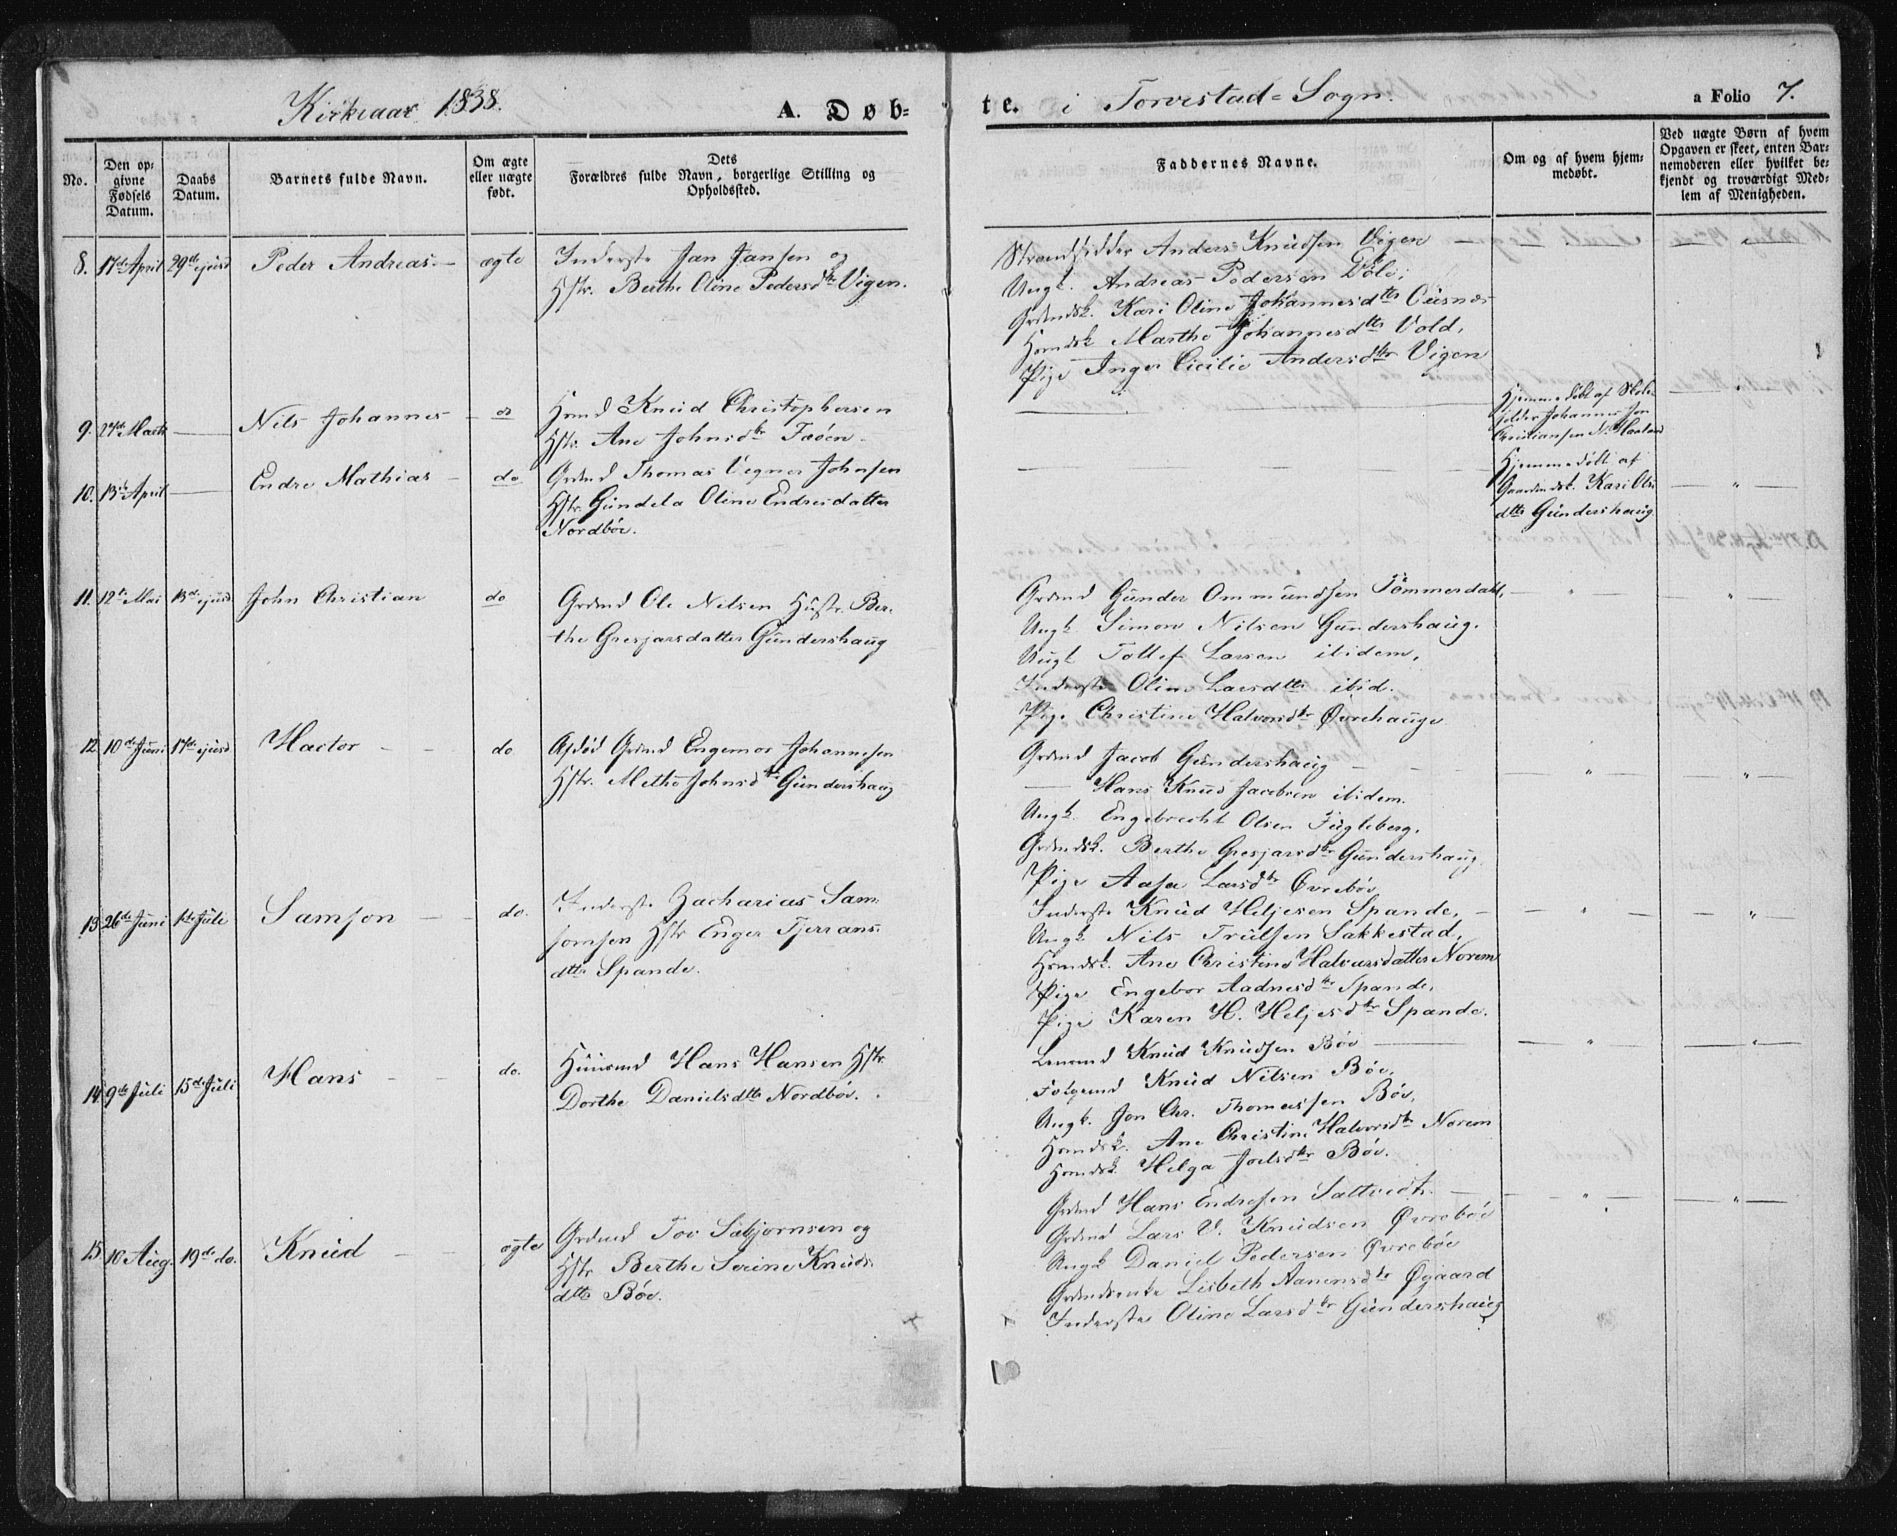 Kirkeaar 1838. A. Døb-
te. i Torvestad-Sogn. a Folio 7.
No.
Den op-
givne
Fødsels
Datum.
Daabs
Datum.
Barnets fulde Navn.
Om ægte
eller uægte
født.
Dets
Forældres fulde Navn, borgerlige Stilling og
Opholdssted.
Faddernes Navne.
Om og af hvem hjem-
medøbt.
Ved uægte Børn af hvem
Opgaven er skeet, enten Bar-
nemoderen eller hvilket be-
kjendt og troværdigt Med-
lem af Menigheden.
8. 17de April 29de ejusd Peder Andreas. ægte
Inderste Jan Jansen og
Hstr. Berthe Oline Pedersdtr Vigen.
Strandsidder Anders Knudsen Vigen
Ungk. Andreas Pedersen Døle;
Grdmdsk. Kari Oline Johannesdttr
Hsmdsk Marthe Johannesdttr Vold,
Pige Inger Cicilie Andersdtr Vigen
9. 27de Marts Nils Johannes
Hsmd Knud Christophersen
Hstr. Ane Johnsdtr
Hjemmedøbt af Skole-
holder Johannes
Christiansen
10. 13de April Endre Mathias do
Grdmd Thomas Vegner Johnsen
Hstr. Gundela Oline Endresdatter
Nordbøe.
Hjemmedøbt af
Gaardmdsk. Kari Ols
dttr Gundershaug.
11. 12te Mai 13de ejusd John Christian do
Grdmd Ole Nilsen Hustr. Ber-
the Gresjarsdatter Gundershaug
Grdmd Gunder Ommundsen Tømmerdahl,
Ungk Simon Nilsen Gundershaug.
Ungk Tollef Larsen ibidem,
Inderste Oline Larsdttr ibid.
Pige Christine Halvorsdtr Øvrehauge
12 10de Juni 17de ejusd Hactor do
Afdød Grdmd Engemor Johannesen
Hstr. Methe Johnsdtr Gundershaug
Grdmd Jacob Gundershaug
Hans Knud Jacobsen ibidem.
Ungk. Engebrecht Olsen Fugleberg.
Grdmdsk. Berthe Gresjarsdtr Gundershaug
Pige Aasa Larsdtr Øvrebøe
13 26de Juni 1ste Juli Samson do.
Inderste Zacharias Sam-
sonsen Hstr Enger Tjerrans-
dttr Spande.
Inderste Knud Heljesen Spande,
Ungk Nils Trulsen Sakkestad,
Hsmdsk. Ane Christine Halvorsdatter Norem
Pige Engebor Aadnesdtr Spande,
Pige Karen H. Heljesdtr Spande.
14 9de Juli 15de Juli Hans do.
Huusmd Hans Hansen Hstr
Dorthe Danielsdttr Nordbøe.
Lensmd Knud Knudsen Bøe
Folgemd Knud Nilsen Bøe,
Ungk. Jon Chr. Thomassen Bøe,
Hsmdsk. Ane Christine Halvorsdtr Norem
Hsmdsk. Helga Joelsdtr Bøe.
15 10 Aug. 19de do. Knud ægte
Grdmd Tov Sebjørnsen og
Hstr Berthe Serine Knuds-
dttr Bøe.
Grdmd Hans Endresen Saltvedt.
Grdmd Lars V. Knudsen Øvrebøe
Ungk Daniel Pedersen Øvrebøe
Grdmdsenke Lisbeth Aanensdtr Øygaard
Inderste Oline Larsdtr Gundershaug